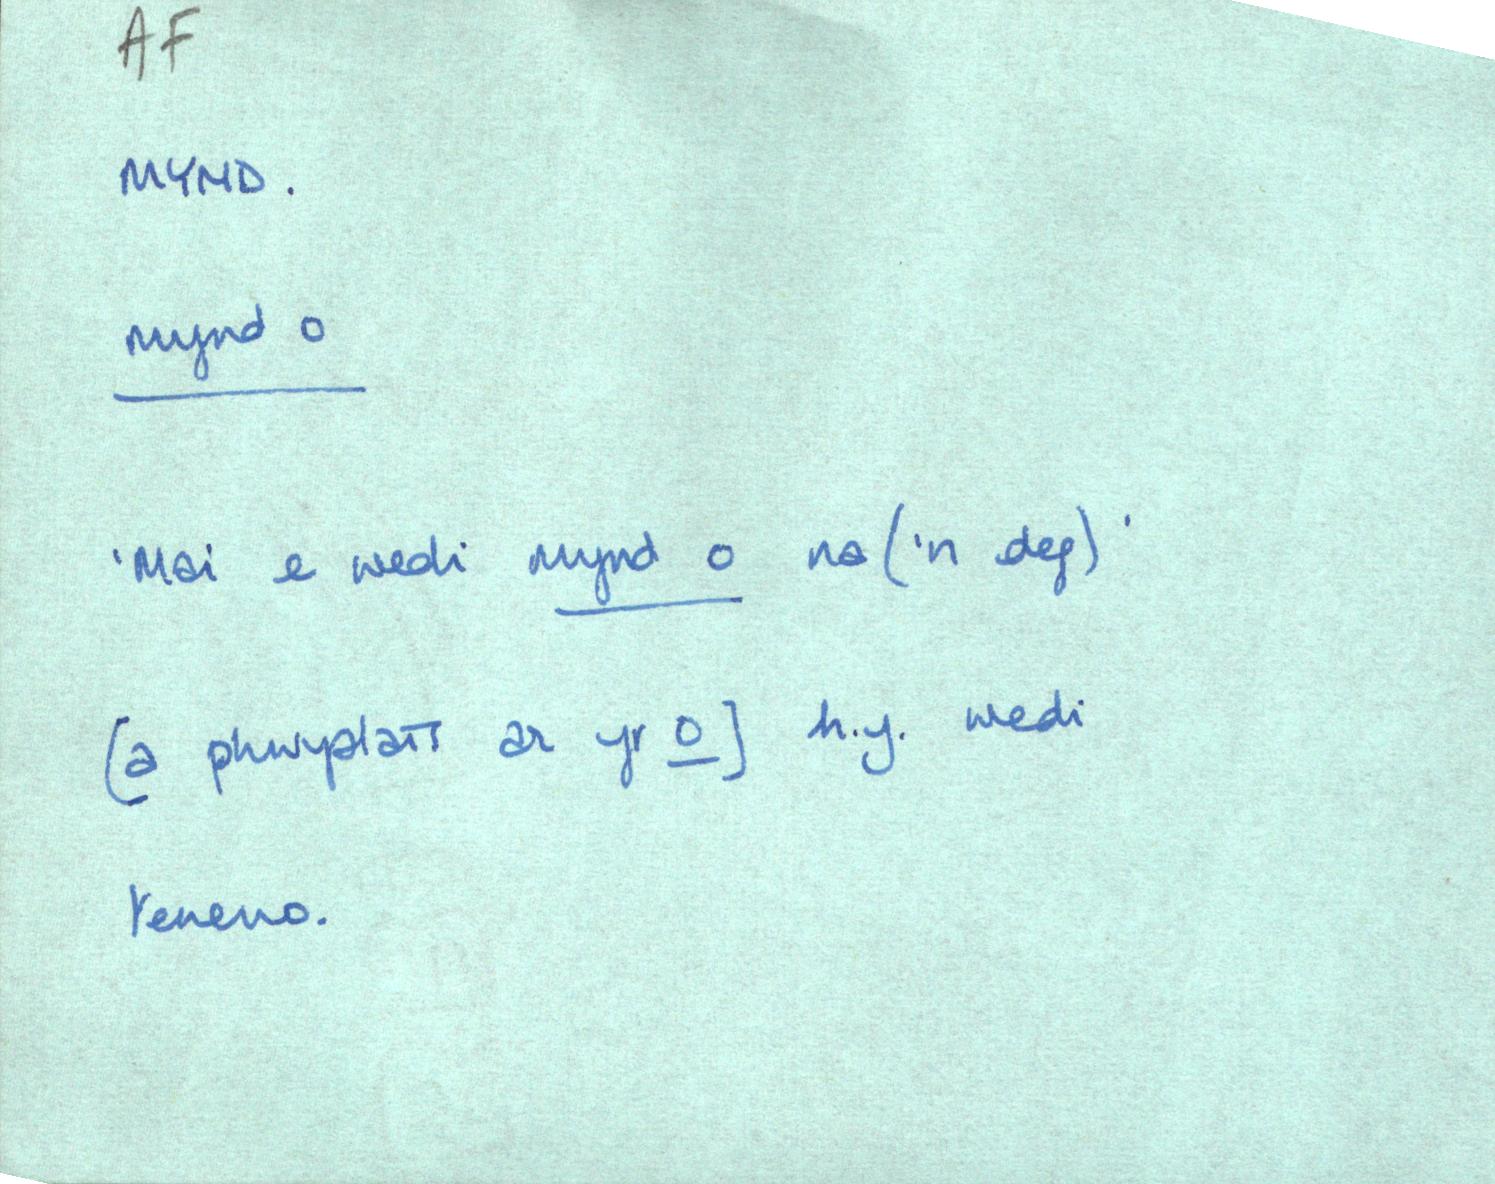 AF
MYND.
mynd o
'Mai e wedi mynd o na ('n deg)'
[a phwyslais ar yr o] h.y. wedi